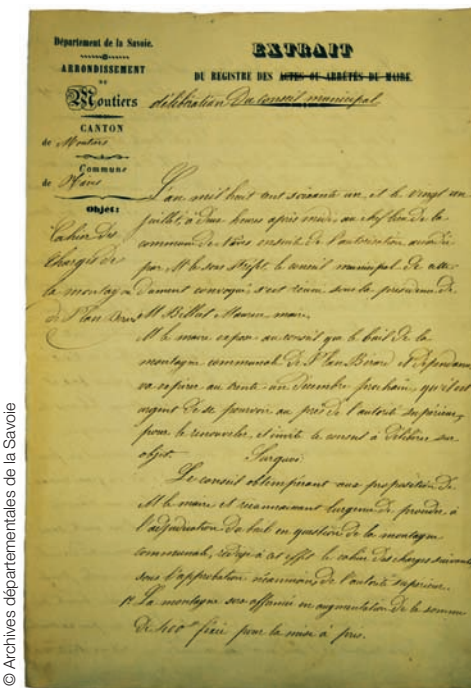 Département de la Savoie.
ARRONDISSEMENT
DE
Moutiers
CANTON
de Moutiers
Commune
de Nâves
Objet:
Cahier des
Charges de
la montagne
de Plan
EXTRAIT
DU REGISTRE DES ACTES OU ARRÊTÉS DU MAIRE.
délibération Du Conseil municipal
L'an mil huit cent soixante un et le vingt un
juillet, à deux heures après midi au chef lieu de la
commune de Nâves ensuite de l'autorisation accordée
par Mr le sous Préfet, le conseil municipal de cette
dument convoqué s'est réuni sous la présidence de
Mr Billat Maurice maire.
Mr le maire expose au conseil que le bail de la
montagne communale de Plan Bérard et dépendances
va expirer au trente un décembre prochain, qu'il est
urgent de se pourvoir au près de l'autorité supérieure
pour le renouveler et invite le conseil à délibérer sur
objet. Surquoi
Le conseil obtempérant aux proposition de
Mr le maire et reconnaissant l'urgence de procéder à
l'adjudication du bail en question de la montagne
communale, rédige à cet effet le cahier des charges suivant
sous l'approbation néanmoins de l'autorité supérieure.
1° La montagne sera affermée en augmentation de la somme
de 400 fixée pour la mise à prix.
© Archives départementales de la Savoie